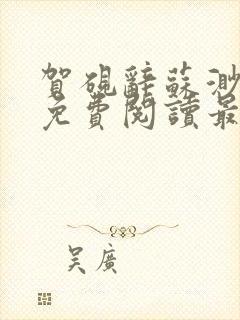 賀硯辭蘇渺
免費閱讀最
吴廣